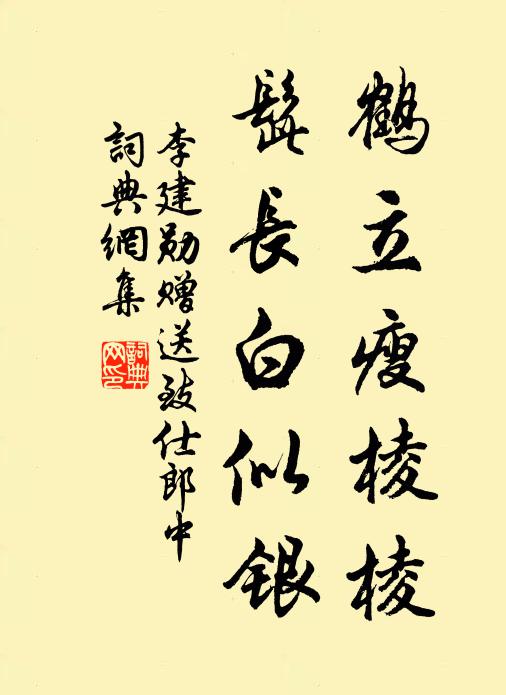 鶴立瘦棱棱
髭長白似銀
李建勛贈送致仕郎中
詞典網集
詞典网印